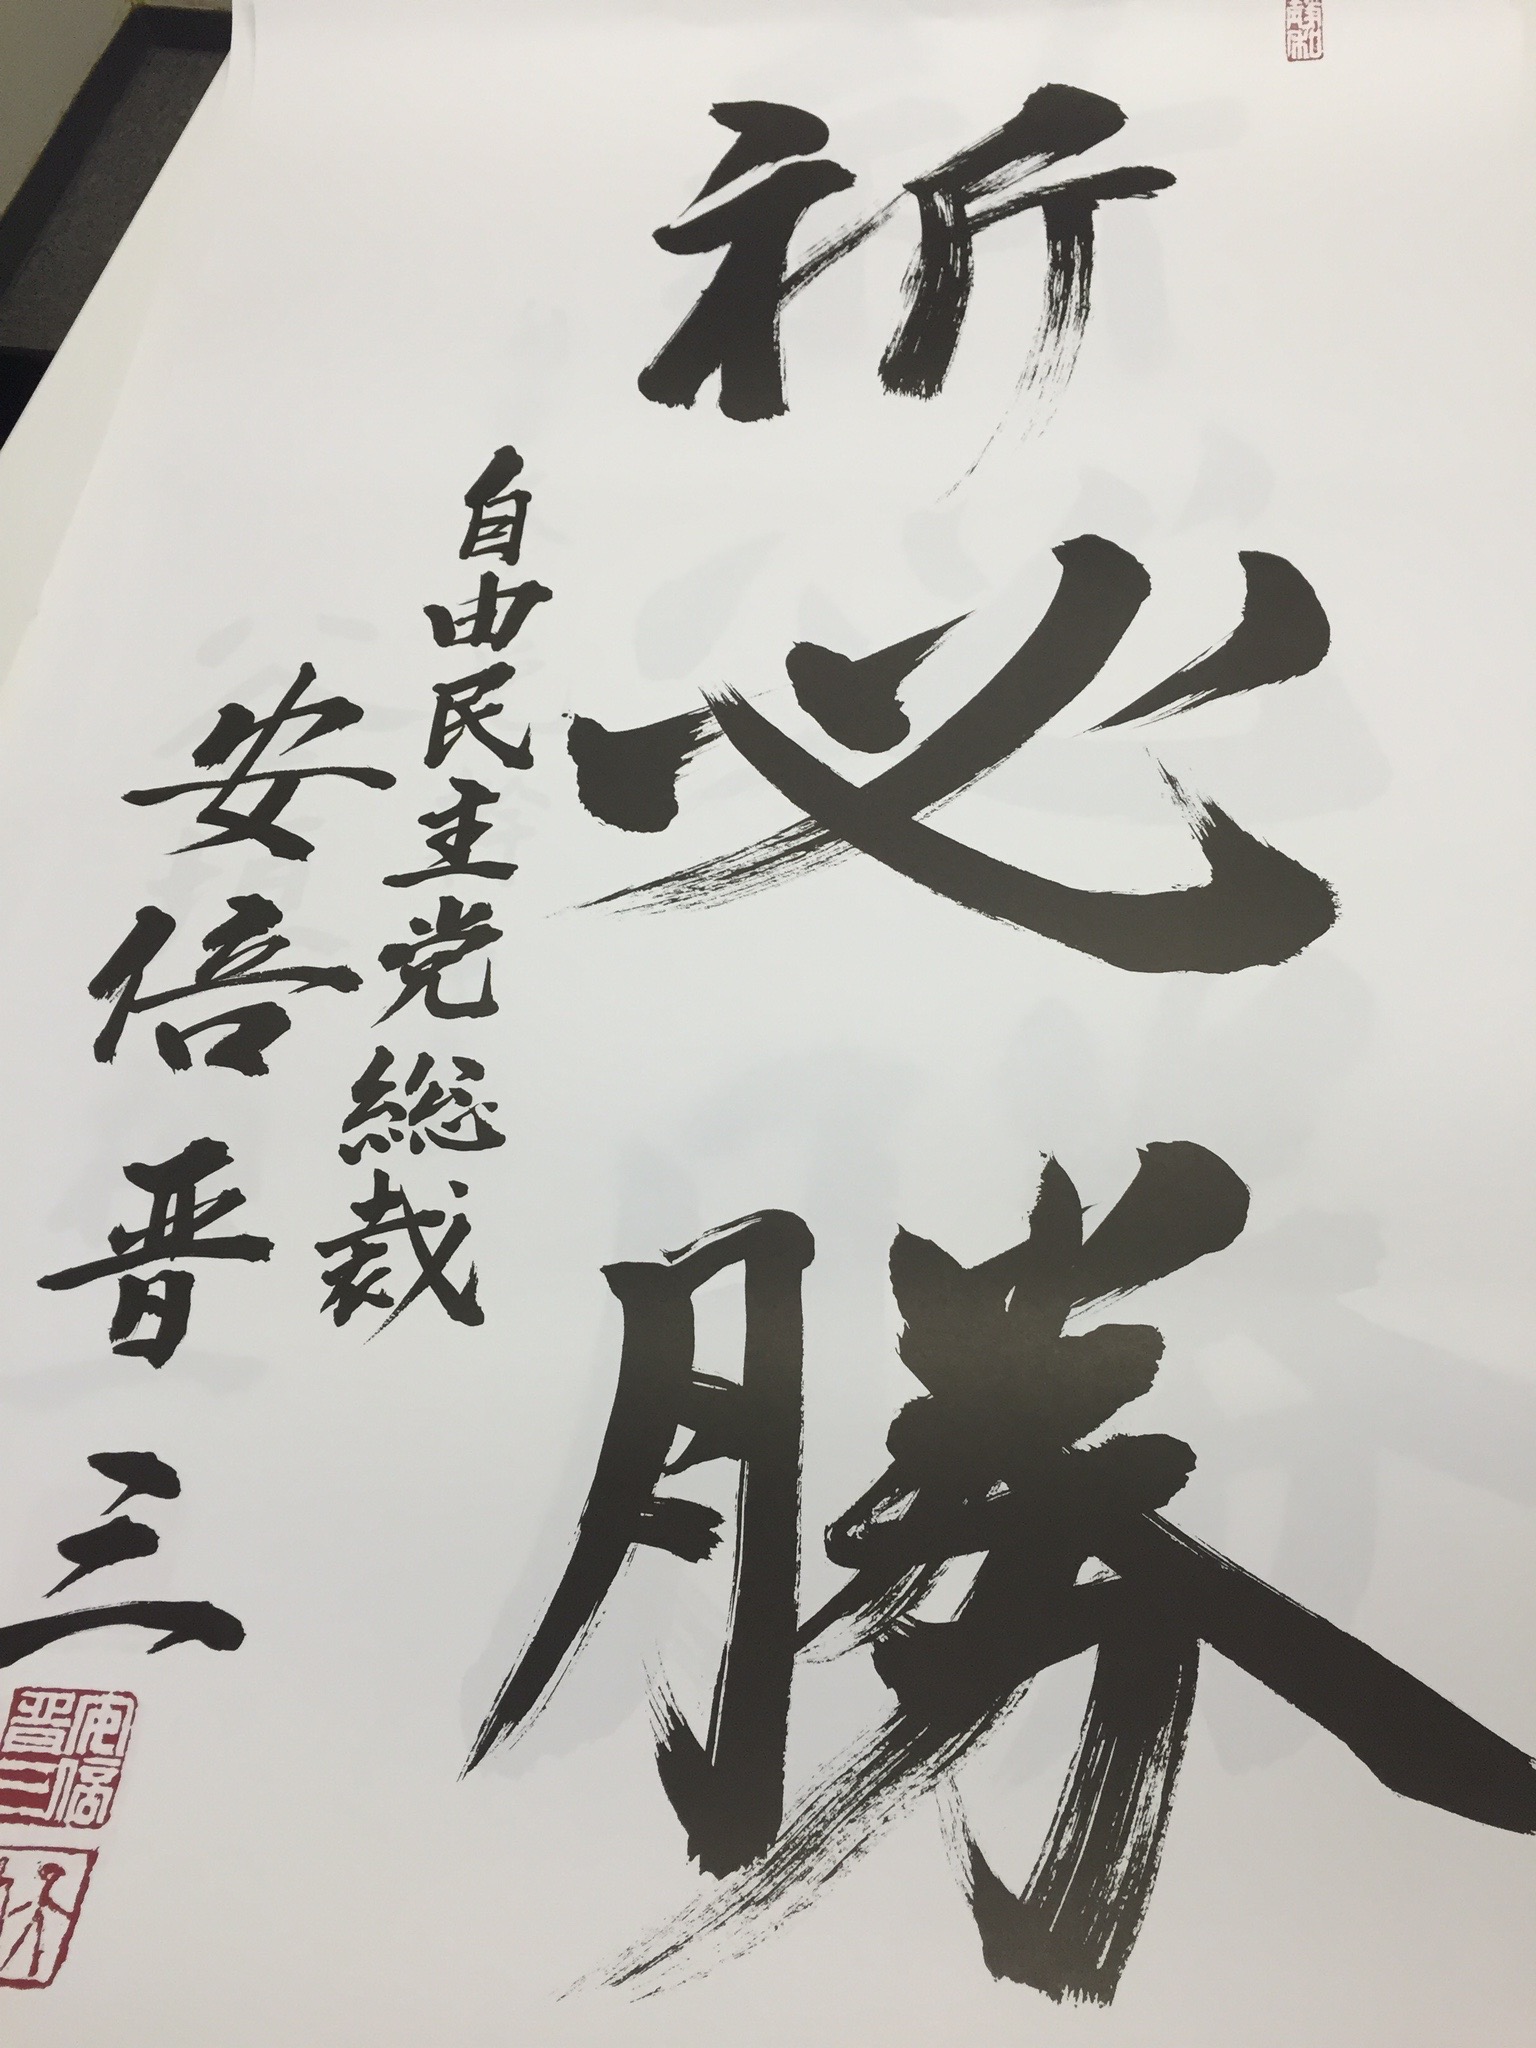 祈必勝
自由民主党総裁
安倍晋三
安倍晋三